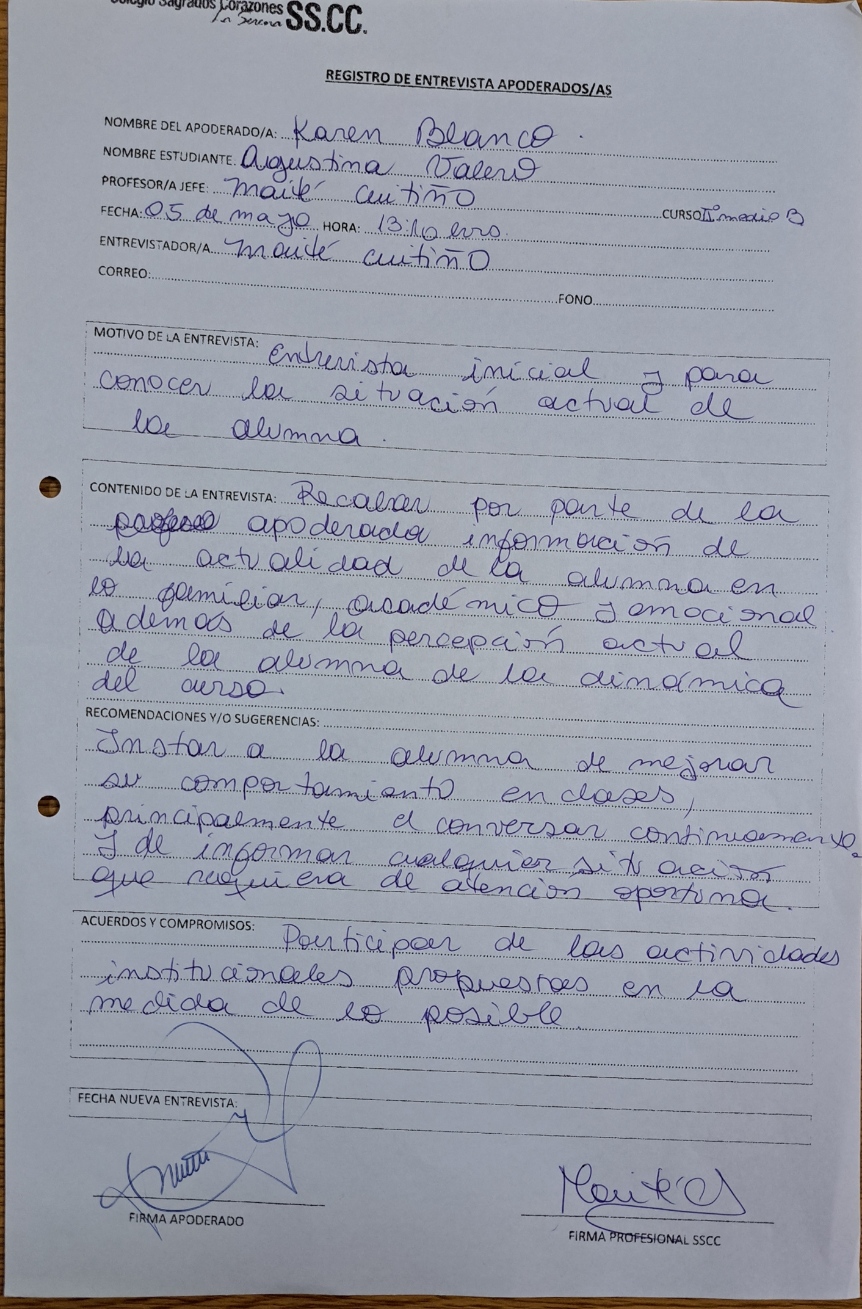 Colegio Sagrados Corazones
La Serena SS.CC.
REGISTRO DE ENTREVISTA APODERADOS/AS
NOMBRE DEL APODERADO/A: Karen Blanco.
NOMBRE ESTUDIANTE: Agustina Valero
PROFESOR/A JEFE: Maité Cutiño CURSO II medio B
FECHA: 05 de mayo HORA: 13:10 hrs.
ENTREVISTADOR/A Maité Cuitiño
CORREO: FONO
MOTIVO DE LA ENTREVISTA: Entrevista inicial y para
conocer la situación actual de
la alumna.
CONTENIDO DE LA ENTREVISTA: Recabar por parte de la
apoderada información de
la actualidad de la alumna en
lo familiar, académico y emocional
además de la percepción actual
de la alumna de la dinámica
del curso.
RECOMENDACIONES Y/O SUGERENCIAS:
Instar a la alumna de mejorar
su comportamiento en clases,
principalmente el conversar continuamente.
Y de informar cualquier situación
que requiera de atención oportuna.
ACUERDOS Y COMPROMISOS: Participar de las actividades
institucionales propuestas en la
medida de lo posible.
FECHA NUEVA ENTREVISTA:
FIRMA APODERADO
FIRMA PROFESIONAL SSCC